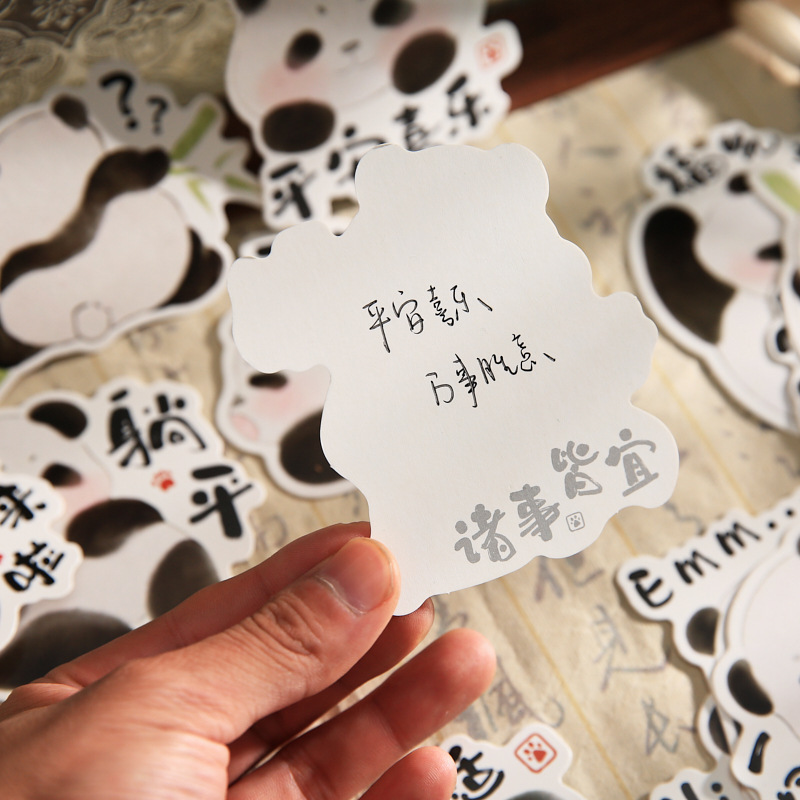 ??
平安喜乐
平安喜乐、
万事胜意、
诸事皆宜
躺平
来啦
Emm..